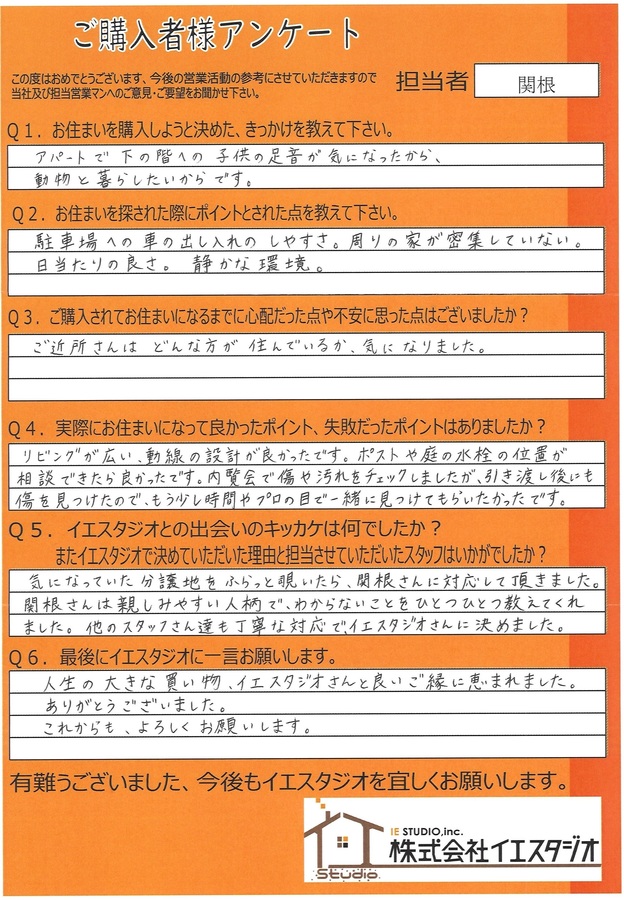 ご購入者様アンケート
この度はおめでとうございます、今後の営業活動の参考にさせていただきますので
当社及び担当営業マンへのご意見・ご要望をお聞かせ下さい。
担当者 関根
Q1．お住まいを購入しようと決めた、きっかけを教えて下さい。
アパートで下の階への子供の足音が気になったから、
動物と暮らしたいからです。
Q2．お住まいを探された際にポイントとされた点を教えて下さい。
駐車場への車の出し入れのしやすさ。周りの家が密集していない。
日当たりの良さ。静かな環境。
Q3．ご購入されてお住まいになるまでに心配だった点や不安に思った点はございましたか？
ご近所さんはどんな方が住んでいるか、気になりました。
Q4．実際にお住まいになって良かったポイント、失敗だったポイントはありましたか？
リビングが広い、動線の設計が良かったです。ポストや庭の水栓の位置が
相談できたら良かったです。内覧会で傷や汚れをチェックしましたが、引き渡し後にも
傷を見つけたので、もう少し時間やプロの目で一緒に見つけてもらいたかったです。
Q5．イエスタジオとの出会いのキッカケは何でしたか？
またイエスタジオで決めていただいた理由と担当させていただいたスタッフはいかがでしたか？
気になっていた分譲地をふらっと覗いたら、関根さんに対応して頂きました。
関根さんは親しみやすい人柄で、わからないことをひとつひとつ教えてくれ
ました。他のスタッフさん達も丁寧な対応で、イエスタジオさんに決めました。
Q6．最後にイエスタジオに一言お願いします。
人生の大きな買い物、イエスタジオさんと良いご縁に恵まれました。
ありがとうございました。
これからも、よろしくお願いします。
有難うございました、今後もイエスタジオを宜しくお願いします。
IE STUDIO,inc.
株式会社イエスタジオ
Studio